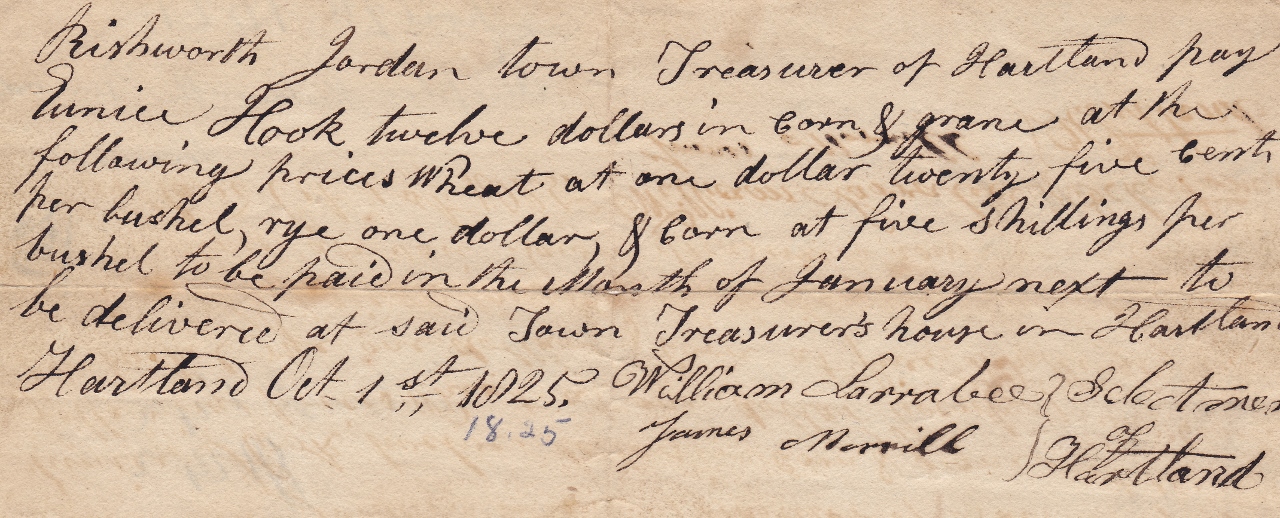 Rishworth Jordan town Treasurer of Hartland pay
Eunice Hook twelve dollars in corn & grane at the
following prices Wheat at one dollar twenty five Cents
per bushel, rye one dollar, & Corn at five shillings per
bushel to be paid in the Month of January next to
be delivered at said Town Treasurer's house in Hartland
Hartland Oct. 1st 1825. William Larrabee } Selectmen
18.25 James Merrill } of
Hartland